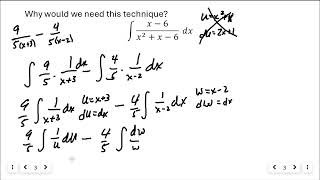 Why would we need this technique?
∫ x−6 / x²+x−6 dx
u=x²+x
du=2x+1
9/5(x+3) − 4/5(x−2)
∫ 9/5 · 1/x+3 dx − ∫ 4/5 · 1/x−2 dx
9/5 ∫ 1/x+3 dx u=x+3 du=dx − 4/5 ∫ 1/x−2 dx w=x−2 dw=dx
9/5 ∫ 1/u du − 4/5 ∫ dw/w
3
3